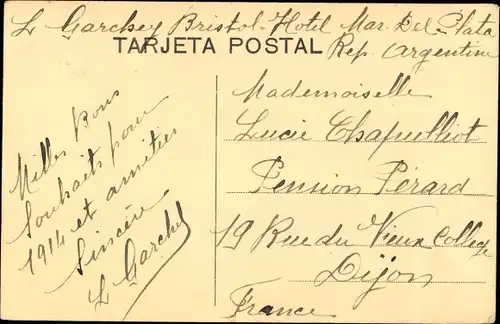 L Garchey Bristol-Hotel Mar Del Plata
Rep. Argentine
TARJETA POSTAL
Milles Bons
Souhaits pour
1914 et amitiés
Sincère
L Garchey
Mademoiselle
Lucie Chapulliot
Pension Pérard
19 Rue du Vieux College
Dijon
France